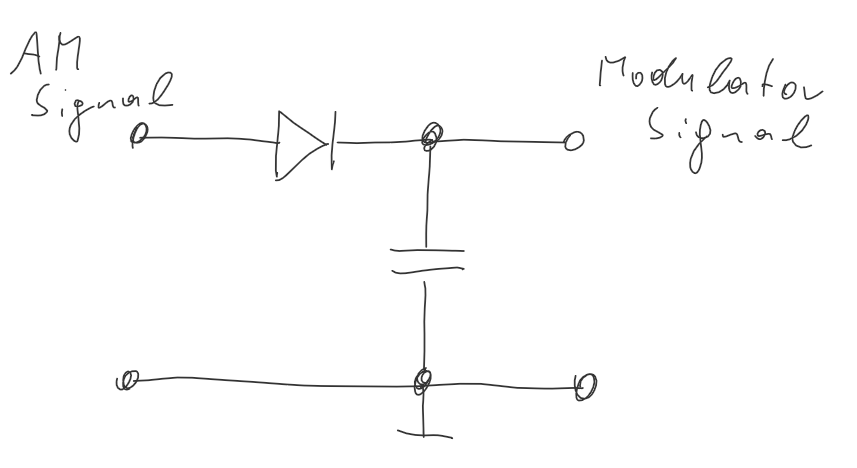 AM
Signal
Modulator
Signal